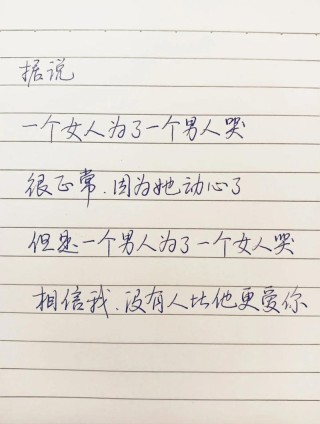 据说
一个女人为了一个男人哭
很正常.因为她动心了
但是一个男人为了一个女人哭
相信我.没有人比他更爱你